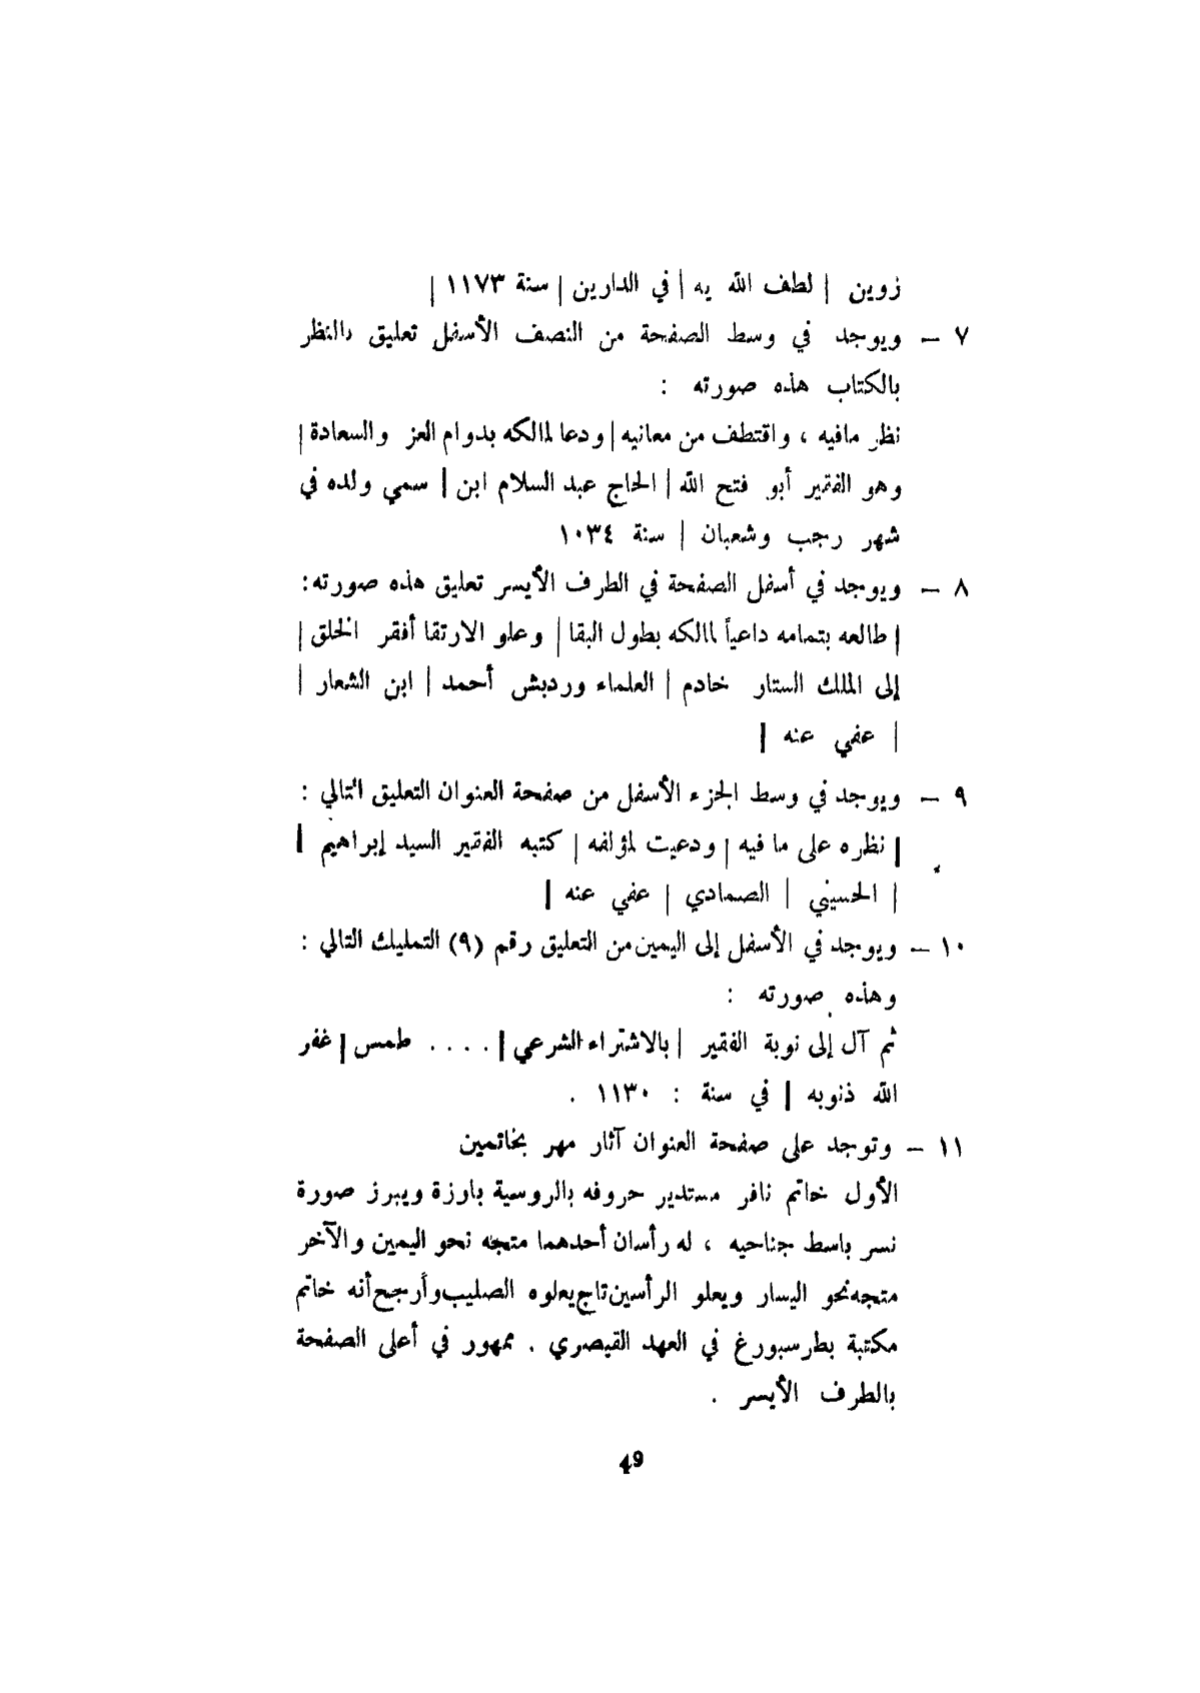 زوين | لطف الله به | في الدارين | سنة ١١٧٣ |
٧ – ويوجد في وسط الصفحة من النصف الأسفل تعليق بالنظر
بالكتاب هذه صورته :
نظر مافيه ، واقتطف من معانيه | ودعا لمالكه بدوام العز والسعادة |
وهو الفقير أبو فتح الله | الحاج عبد السلام ابن | سمي ولده في
شهر رجب وشعبان | سنة ١٠٣٤
٨ – ويوجد في أسفل الصفحة في الطرف الأيسر تعليق هذه صورته :
| طالعه بتمامه داعياً لمالكه بطول البقا | وعلو الارتقا أفقر الخلق |
إلى الملك الستار خادم | العلماء ورديش أحمد | ابن الشعار |
| عفي عنه |
٩ – ويوجد في وسط الجزء الأسفل من صفحة العنوان التعليق التالي :
| نظره على ما فيه | ودعيت لمؤلفه | كتبه الفقير السيد إبراهيم |
| الحسيني | الصمادي | عفي عنه |
١٠ – ويوجد في الأسفل إلى اليمين من التعليق رقم (٩) التمليك التالي :
وهذه صورته :
ثم آل إلى نوبة الفقير | بالاشتراء الشرعي | . . . . طمس | غفر
الله ذنوبه | في سنة : ١١٣٠ .
١١ – وتوجد على صفحة العنوان آثار مهر بخاتمين
الأول خاتم نافر مستدير حروفه بالروسية بارزة ويبرز صورة
نسر باسط جناحيه ، له رأسان أحدهما متجه نحو اليمين والآخر
متجه نحو اليسار ويعلو الرأسين تاج يعلوه الصليب وأرجح أنه خاتم
مكتبة بطرسبورغ في العهد القيصري . ممهور في أعلى الصفحة
بالطرف الأيسر .
49